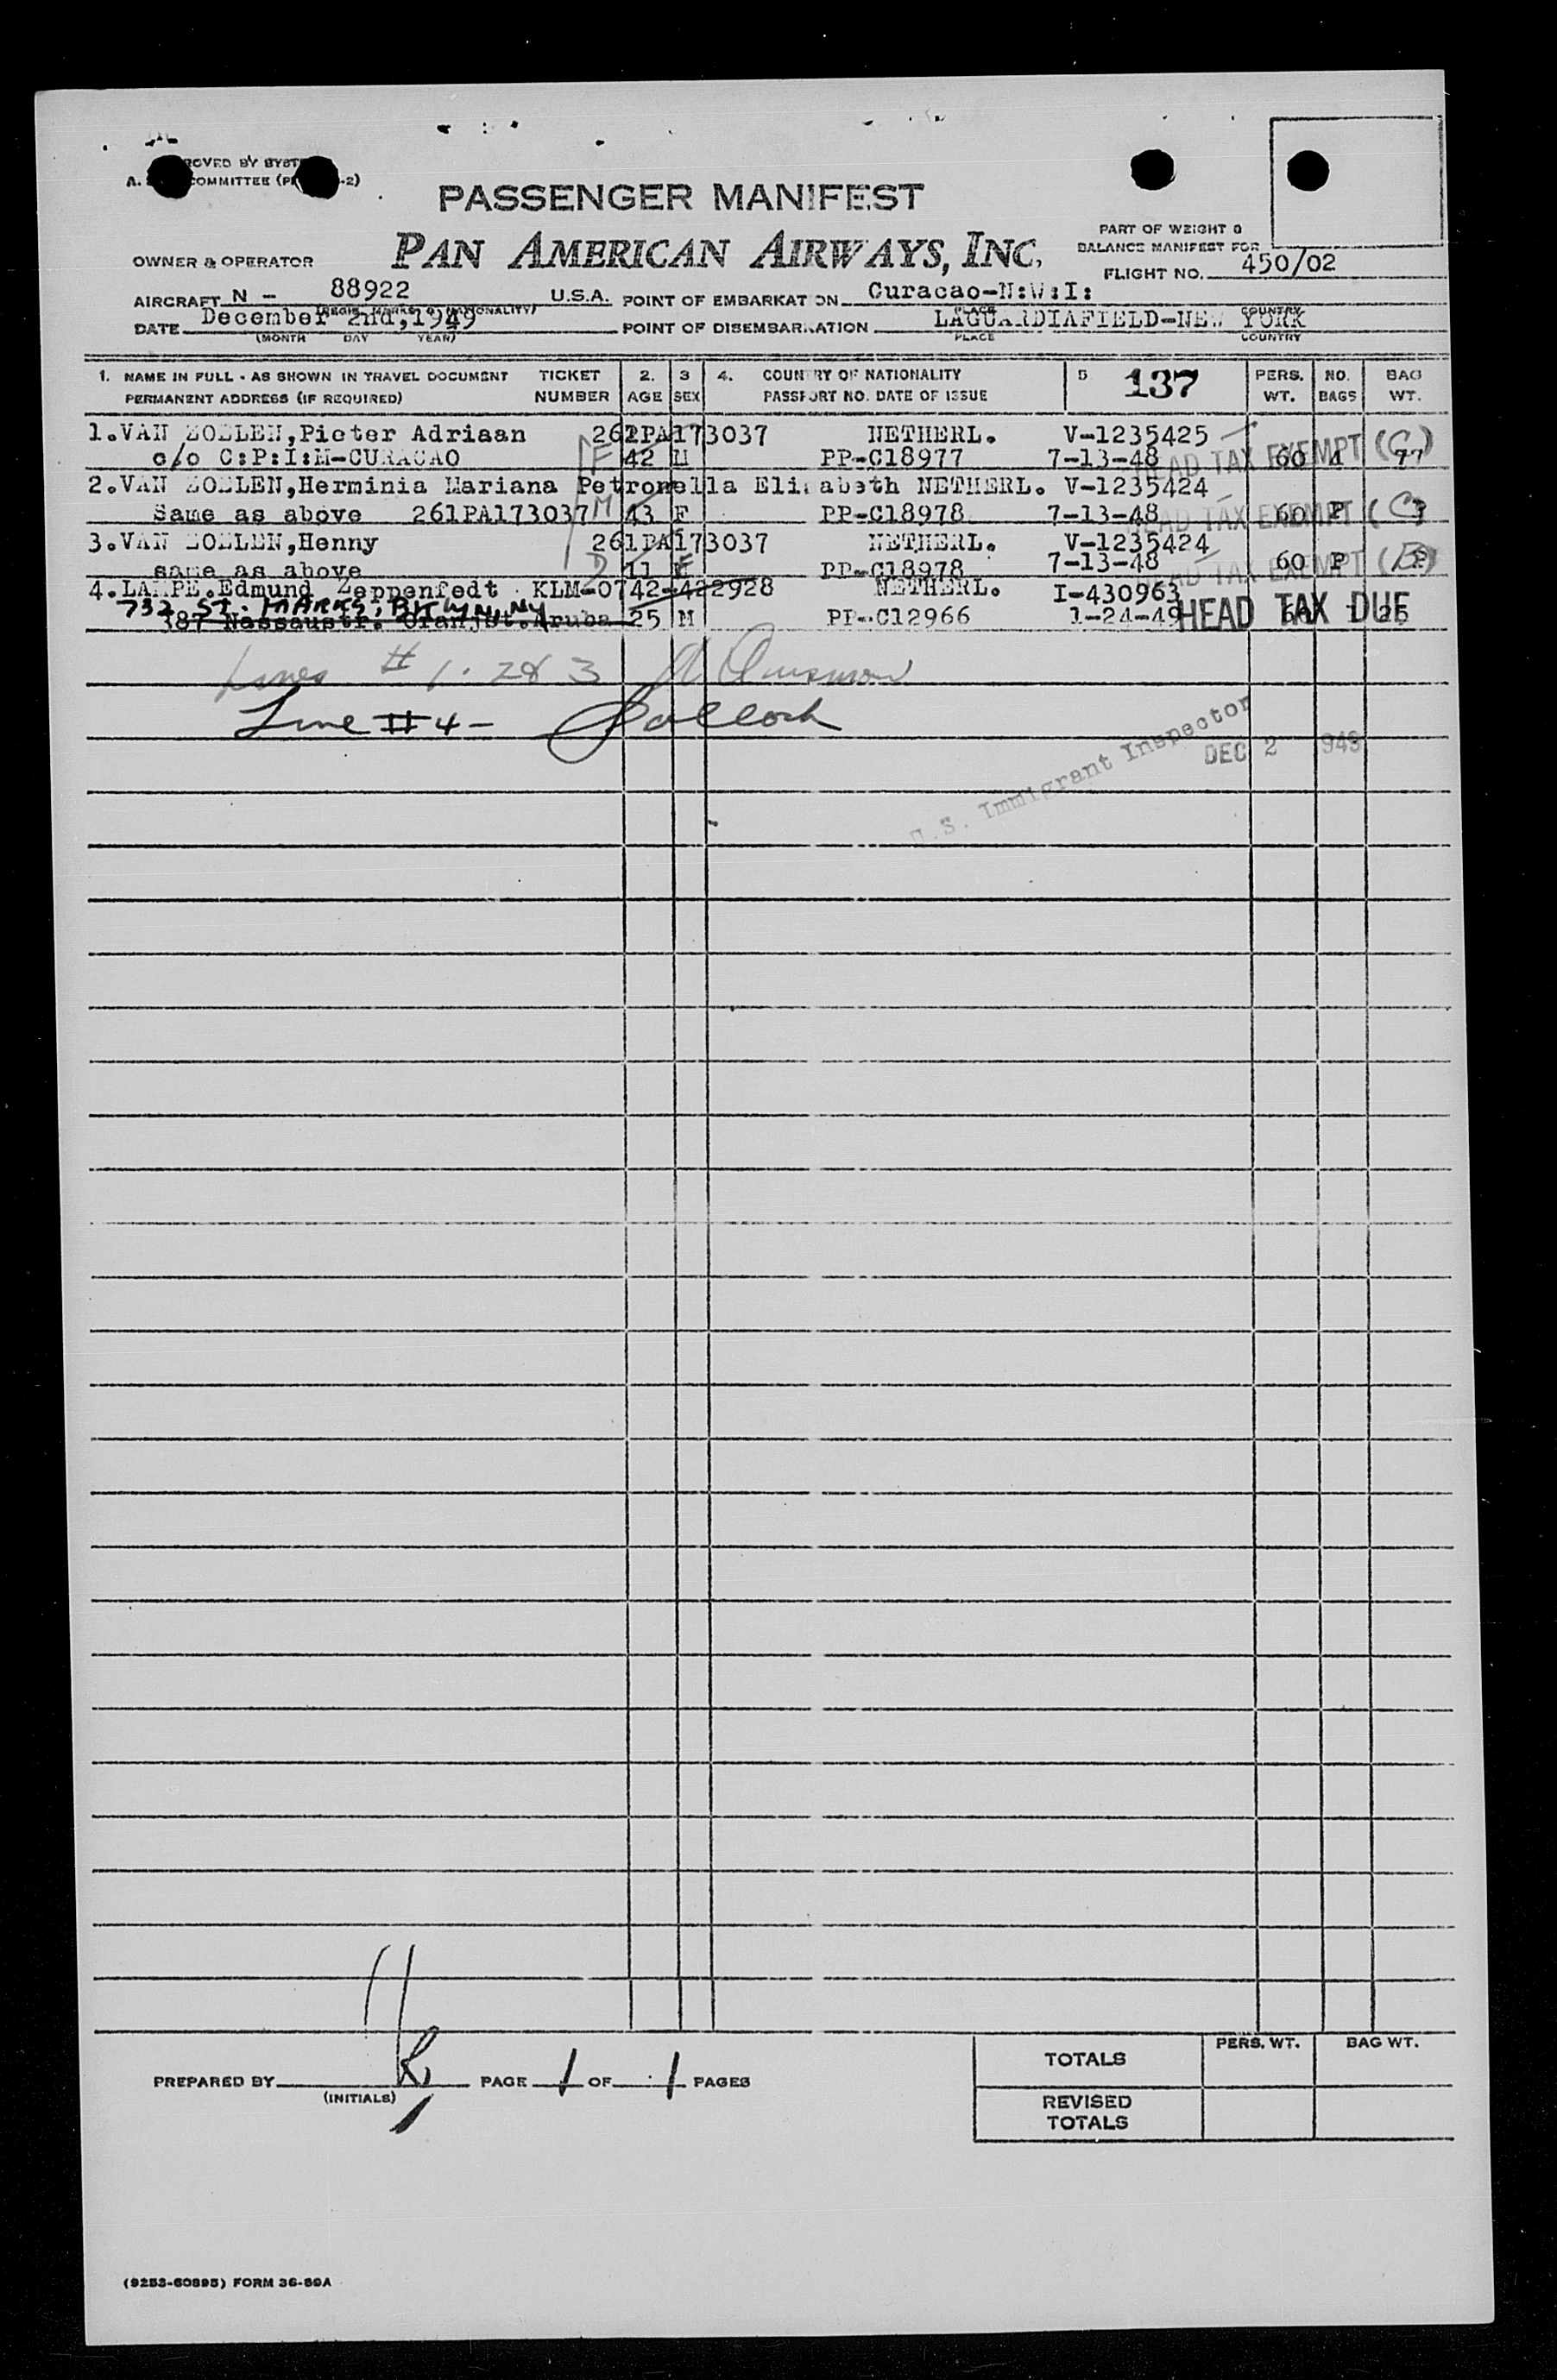 COMMITTEE
PASSENGER MANIFEST
PAN AMERICAN AIRWAYS, INC.
PART OF WEIGHT &
BALANCE MANIFEST FOR
OWNER & OPERATOR
FLIGHT NO. 450/02
AIRCRAFT N - 88922 U.S.A. POINT OF EMBARKATION Curacao-N:W:I:
DATE December 2nd,1949 POINT OF DISEMBARKATION LAGUARDIAFIELD-NEW YORK
(MONTH DAY YEAR) PLACE COUNTRY
1. NAME IN FULL - AS SHOWN IN TRAVEL DOCUMENT TICKET 2. 3 4. COUNTRY OF NATIONALITY 5 137 PERS. NO. BAG
PERMANENT ADDRESS (IF REQUIRED) NUMBER AGE SEX PASSPORT NO. DATE OF ISSUE WT. BAGS WT.
1.VAN Pieter Adriaan 261PA173037 NETHERL. V-1235425
c/o C:P:I:M-CURACAO F 42 M PP-C18977 7-13-48 HEAD TAX EXEMPT (C) 60 4 77
2.VAN Herminia Mariana Petronella Elisabeth NETHERL. V-1235424
Same as above 261PA173037 M 43 F PP-C18978 7-13-48 HEAD TAX EXEMPT (C) 60 P
3.VAN Henny 261PA173037 NETHERL. V-1235424
same as above D 11 F PP-C18978 7-13-48 HEAD TAX EXEMPT 60 P
4.LAMPE.Edmund Zeppenfedt KLM-0742-422928 NETHERL. I-430963
732 ST. MARKS, BKLYN, NY HEAD TAX DUE
387 Nassaustr. Oranjst.Aruba 25 M PP-C12966 1-24-49 1 25
Lines # 1. 2 & 3
Line # 4 - Pollock
U.S. Immigrant Inspector
DEC 2
PREPARED BY PAGE 1 OF 1 PAGES
(INITIALS)
TOTALS PERS. WT. BAG WT.
REVISED
TOTALS
(9253-60895) FORM 36-59A